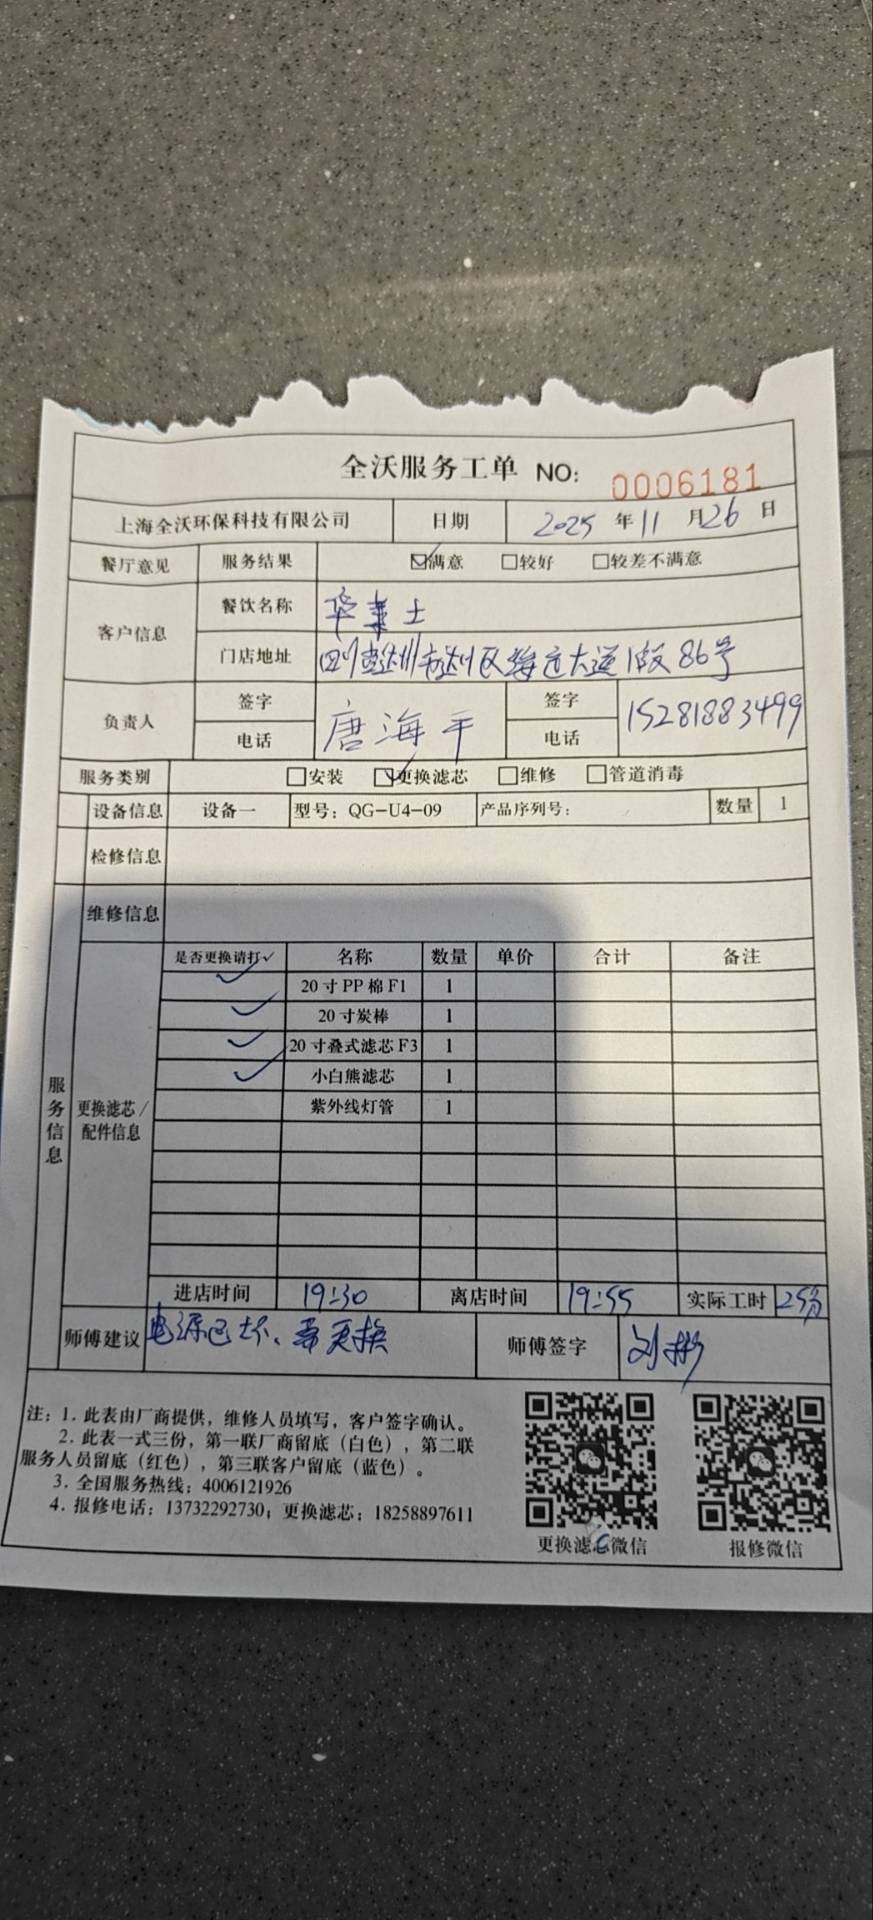 全沃服务工单 NO: 0006181
上海全沃环保科技有限公司 日期 2025 年 11 月 26 日
餐厅意见 服务结果 ☑满意 □较好 □较差不满意
客户信息 餐饮名称 华莱士
门店地址 四川达州市达川区 大道 86号
负责人 签字 电话 唐海平 签字 电话 15281883499
服务类别 □安装 ☑更换滤芯 □维修 □管道消毒
设备信息 设备一 型号：QG-U4-09 产品序列号： 数量 1
检修信息
维修信息
服务信息
更换滤芯/配件信息
是否更换请打✓ 名称 数量 单价 合计 备注
✓ 20寸PP棉F1 1
✓ 20寸炭棒 1
✓ 20寸叠式滤芯F3 1
✓ 小白熊滤芯 1
紫外线灯管 1
进店时间 19:30 离店时间 19:55 实际工时 25分
师傅建议 电源已坏、需更换 师傅签字 刘彬
注：1.此表由厂商提供，维修人员填写，客户签字确认。
2.此表一式三份，第一联厂商留底（白色），第二联
服务人员留底（红色），第三联客户留底（蓝色）。
3.全国服务热线：4006121926
4.报修电话：13732292730；更换滤芯：18258897611
更换滤芯微信 报修微信